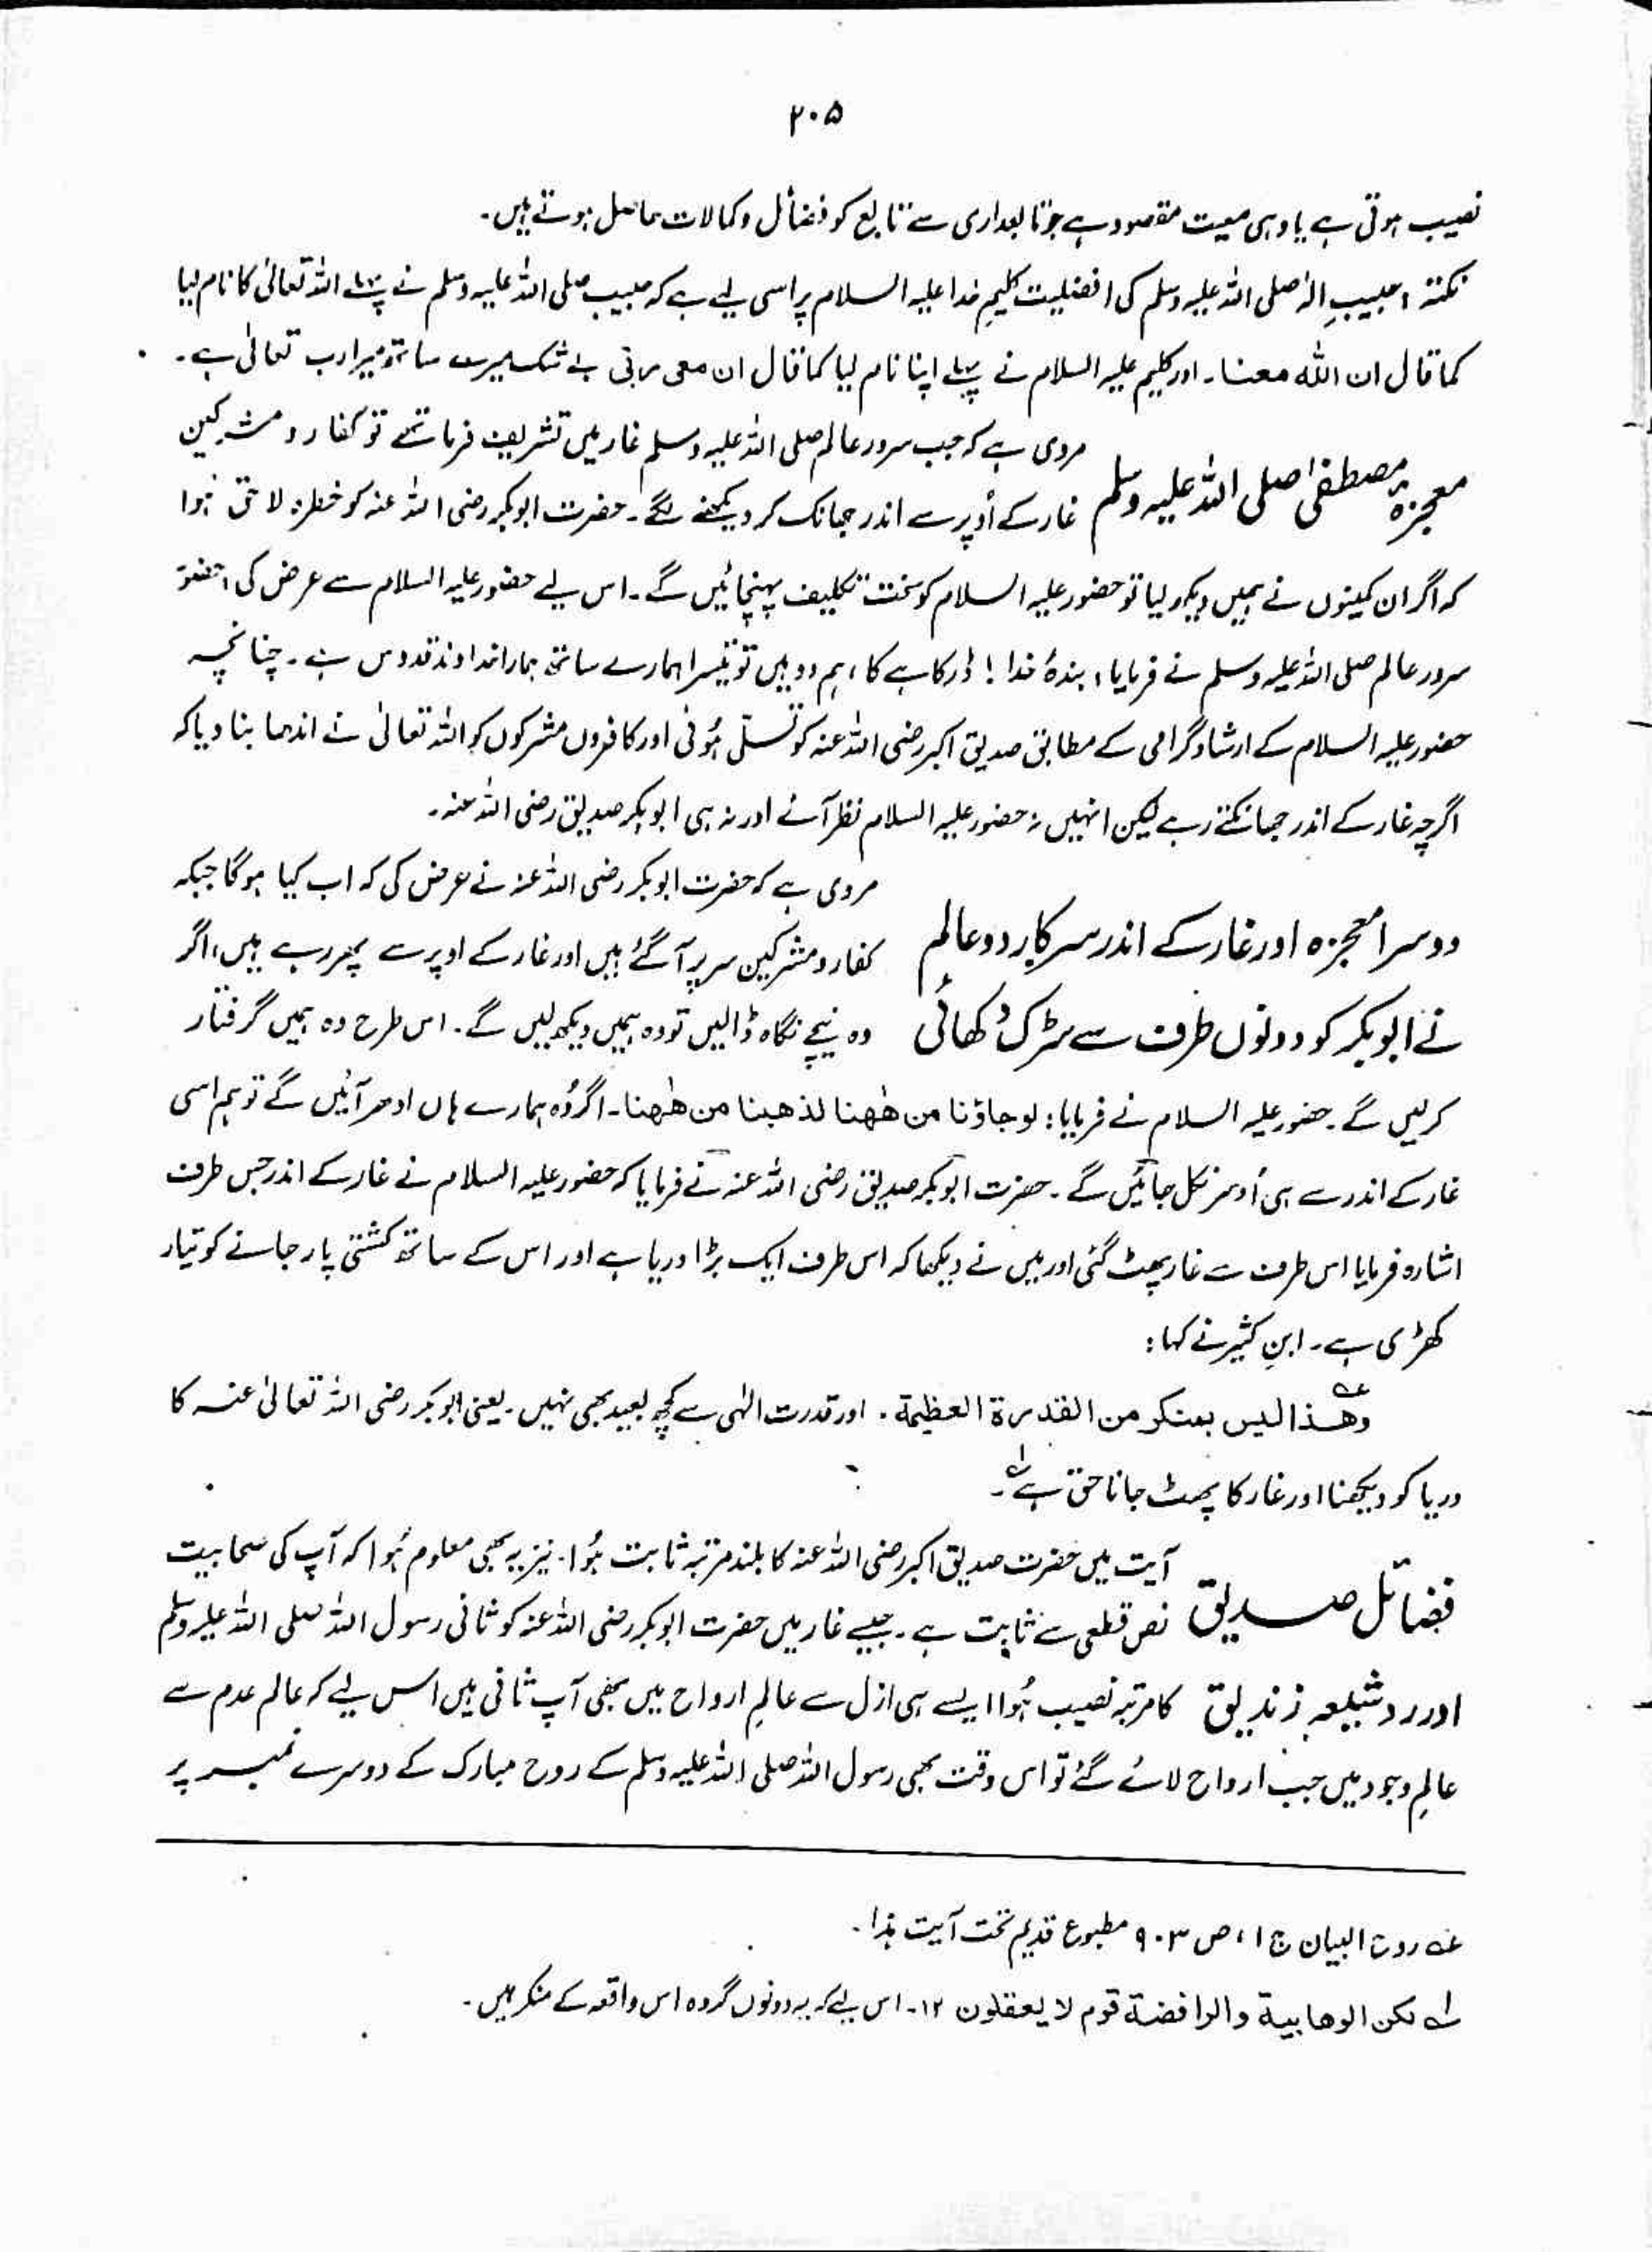 ۲۰۵
نصیب ہوتی ہے یا وہی معیت مقصود ہے جو تابعداری سے تابع کو فضائل و کمالات حاصل ہوتے ہیں۔
نکتہ : حبیبِ الٰہ صلی اللہ علیہ وسلم کی افضلیت کلیمِ خدا علیہ السلام پر اسی لیے ہے کہ حبیب صلی اللہ علیہ وسلم نے پہلے اللہ تعالیٰ کا نام لیا
کما قال ان اللہ معنا۔ اور کلیم علیہ السلام نے پہلے اپنا نام لیا کما قال ان معی ربی بے شک میرے ساتھ میرا رب تعالیٰ ہے۔
معجزہ مصطفیٰ صلی اللہ علیہ وسلم
مروی ہے کہ جب سرور عالم صلی اللہ علیہ وسلم غار میں تشریف فرما تھے تو کفار و مشرکین
غار کے اُوپر سے اندر جھانک کر دیکھنے لگے۔ حضرت ابوبکر رضی اللہ عنہ کو خطرہ لاحق ہُوا
کہ اگر ان کمینوں نے ہمیں دیکھ لیا تو حضور علیہ السلام کو سخت تکلیف پہنچائیں گے۔ اس لیے حضور علیہ السلام سے عرض کی، حضور
سرور عالم صلی اللہ علیہ وسلم نے فرمایا، بندۂ خدا ! ڈر کاہے کا، ہم دو ہیں تو تیسرا ہمارے ساتھ ہمارا خداوند قدوس ہے۔ چنانچہ
حضور علیہ السلام کے ارشاد گرامی کے مطابق صدیق اکبر رضی اللہ عنہ کو تسلّی ہُوئی اور کافروں مشرکوں کو اللہ تعالیٰ نے اندھا بنا دیا کہ
اگرچہ غار کے اندر جھانکتے رہے لیکن انہیں نہ حضور علیہ السلام نظر آئے اور نہ ہی ابوبکر صدیق رضی اللہ عنہ۔
دوسرا معجزہ اور غار کے اندر سرکارِ دو عالم
نے ابوبکر کو دونوں طرف سے سڑک دکھائی
مروی ہے کہ حضرت ابوبکر رضی اللہ عنہ نے عرض کی کہ اب کیا ہوگا جبکہ
کفار و مشرکین سر پر آگئے ہیں اور غار کے اوپر سے پھر رہے ہیں، اگر
وہ نیچے نگاہ ڈالیں تو وہ ہمیں دیکھ لیں گے۔ اس طرح وہ ہمیں گرفتار
کرلیں گے۔ حضور علیہ السلام نے فرمایا: لو جاؤنا من ھٰھنا لذھبنا من ھٰھنا۔ اگر وُہ ہمارے ہاں ادھر آئیں گے تو ہم اسی
غار کے اندر سے ہی اُدھر نکل جائیں گے۔ حضرت ابوبکر صدیق رضی اللہ عنہ نے فرمایا کہ حضور علیہ السلام نے غار کے اندر جس طرف
اشارہ فرمایا اس طرف سے غار پھٹ گئی اور میں نے دیکھا کہ اس طرف ایک بڑا دریا ہے اور اس کے ساتھ کشتی پار جانے کو تیار
کھڑی ہے۔ ابن کثیر نے کہا :
وھٰذا لیس بمنکر من القدرۃ العظیمۃ۔ اور قدرت الٰہی سے کچھ بعید بھی نہیں۔ یعنی ابوبکر رضی اللہ تعالیٰ عنہ کا
دریا کو دیکھنا اور غار کا پھٹ جانا حق ہے۔
فضائل صدیق
اور ردِ شیعہ زندیق
آیت میں حضرت صدیق اکبر رضی اللہ عنہ کا بلند مرتبہ ثابت ہُوا۔ نیز یہ بھی معلوم ہُوا کہ آپ کی صحابیت
نص قطعی سے ثابت ہے۔ جیسے غار میں حضرت ابوبکر رضی اللہ عنہ کو ثانی رسول اللہ صلی اللہ علیہ وسلم
کا مرتبہ نصیب ہُوا ایسے ہی ازل سے عالمِ ارواح میں بھی آپ ثانی ہیں اس لیے کہ عالم عدم سے
عالمِ وجود میں جب ارواح لائے گئے تو اس وقت بھی رسول اللہ صلی اللہ علیہ وسلم کے روح مبارک کے دوسرے نمبر پر
عہ روح البیان ج ۱، ص ۹۰۳ مطبوع قدیم تحت آیت ہذا۔
لہ لکن الوھابیۃ والرافضۃ قوم لا یعقلون ۱۲۔ اس لیے کہ یہ دونوں گروہ اس واقعہ کے منکر ہیں۔